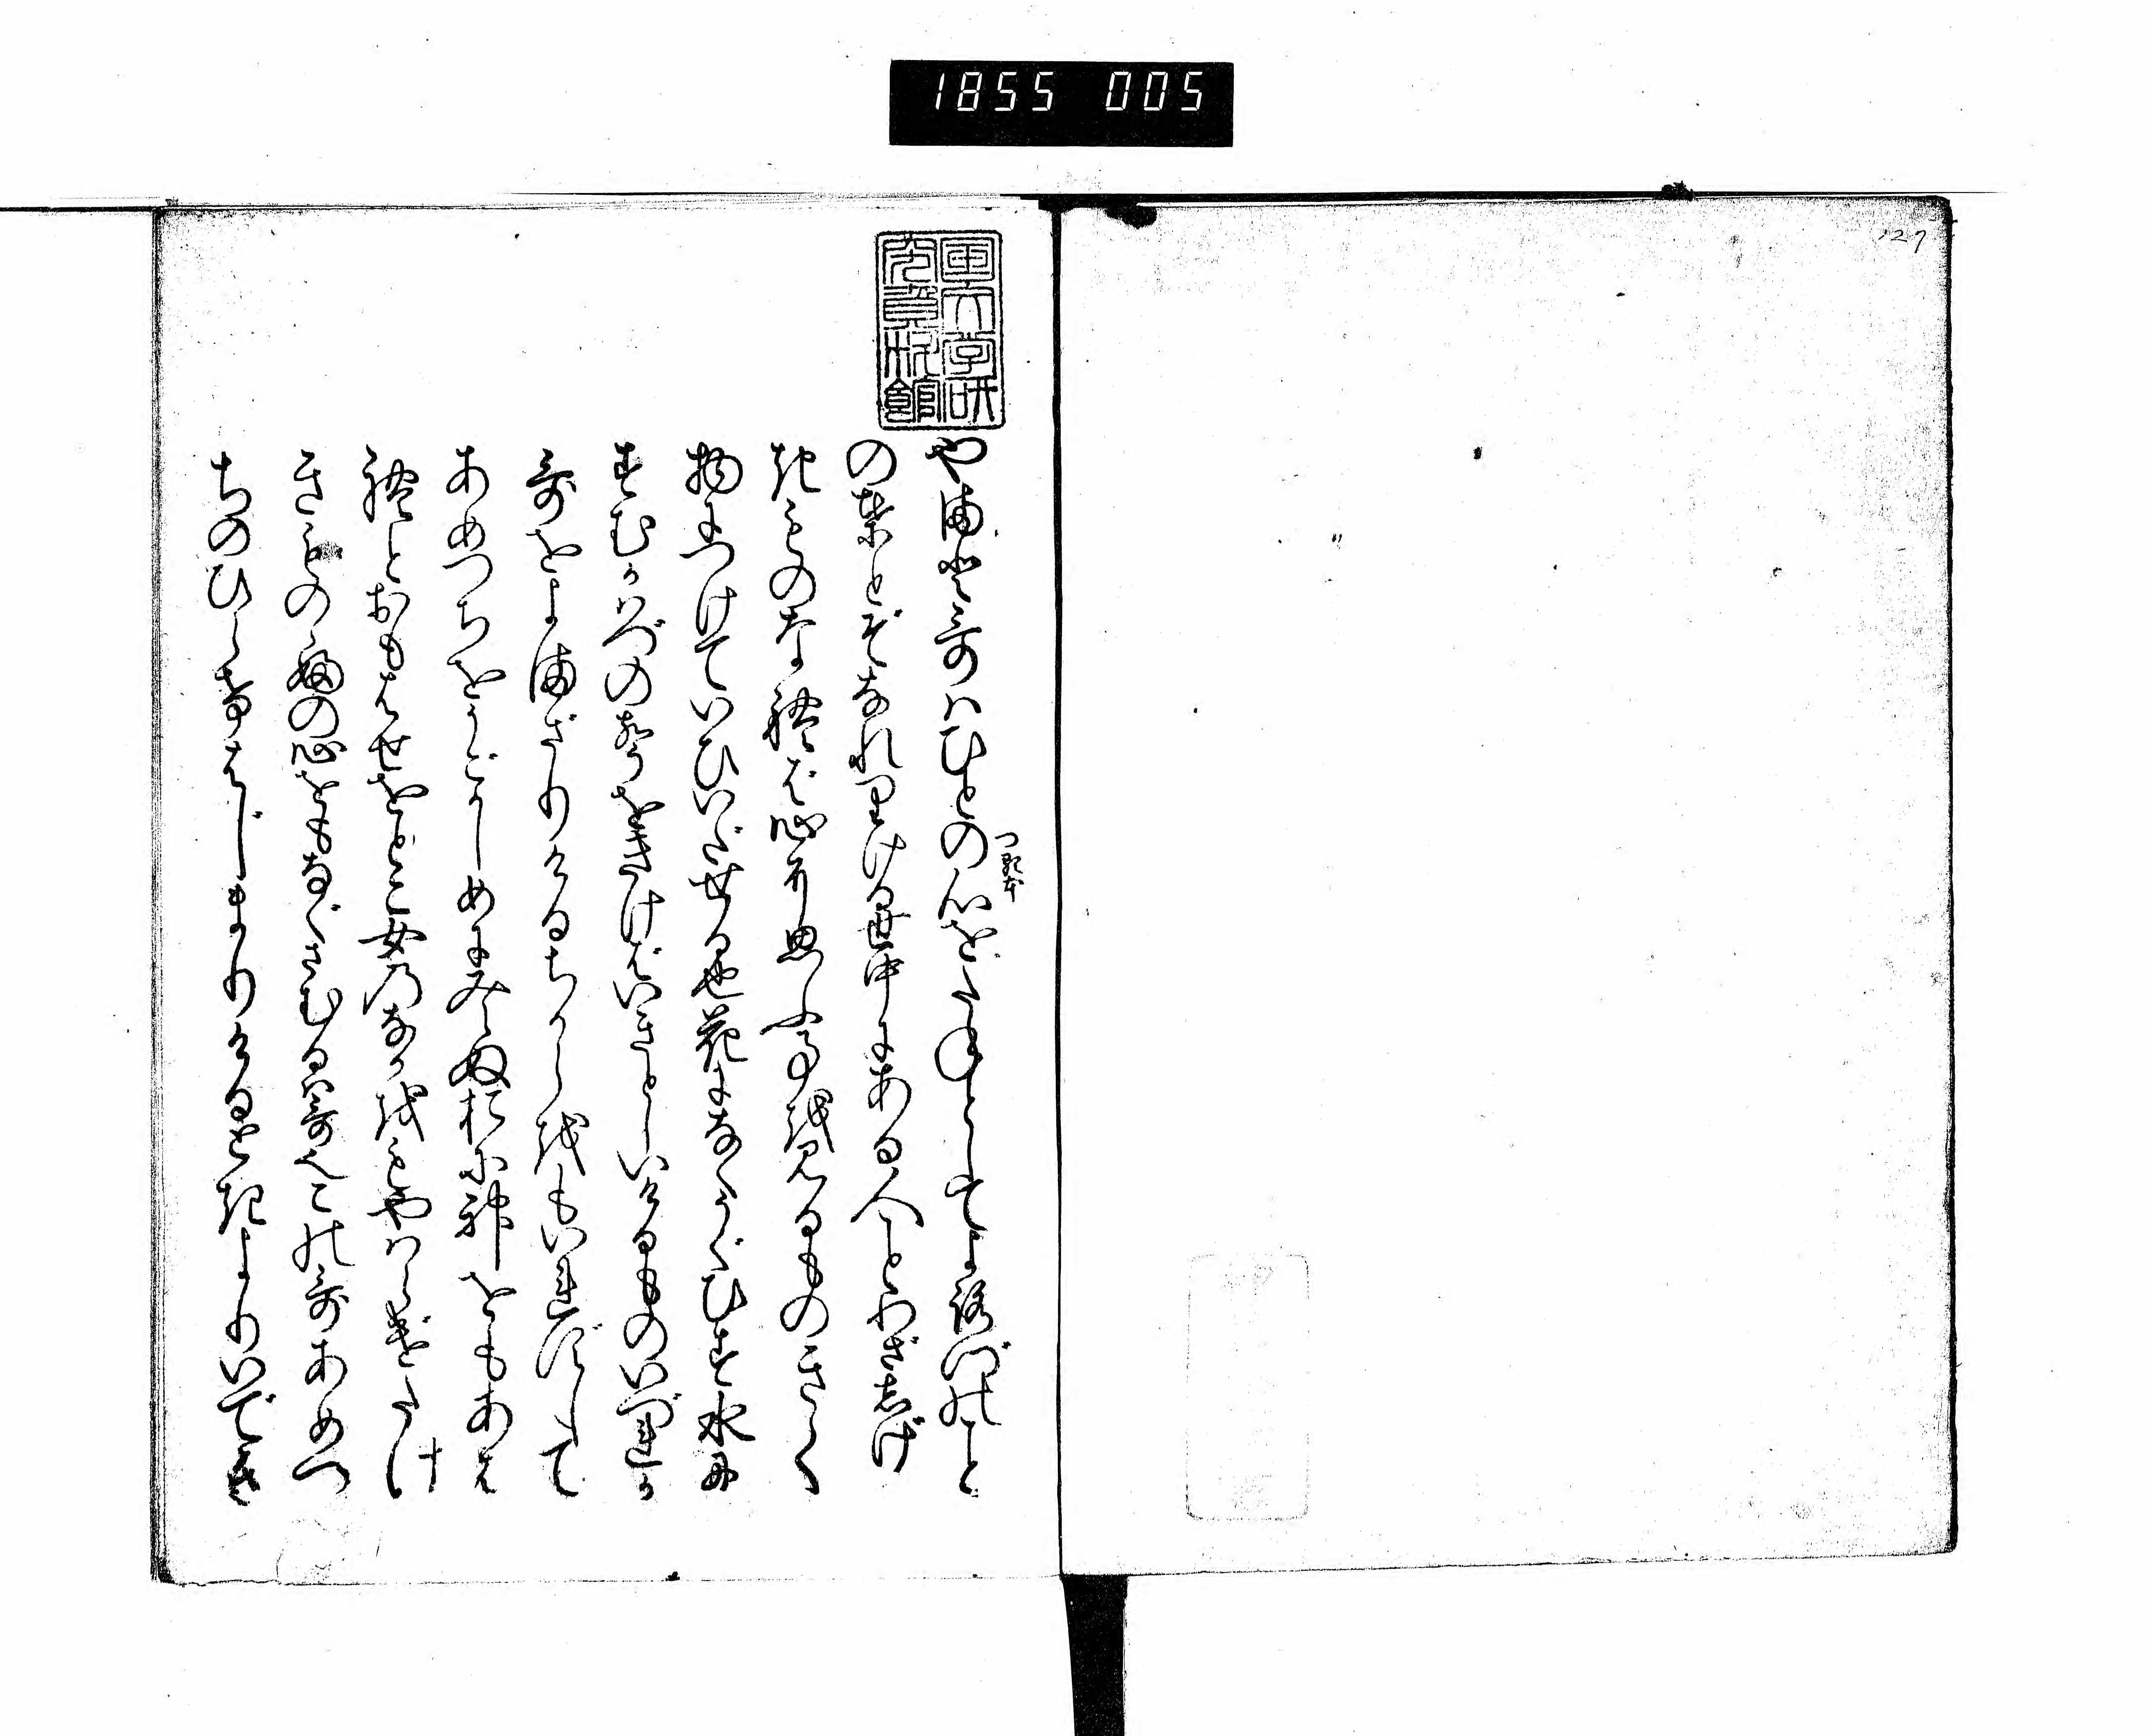 1855 005
127
国文学研
究資料館
やまと哥はひとの心をたねとしてよろづのこと
つ貫本
の葉とぞなれりける世中にある人ことわざしげ
きものなればば心に思ふ事を見るものきく
物につけていひいだせる也花になくうぐひす水に
すむかはづの声をきけばいきとしいけるものいづれか
哥をよまざりけるちからをもいれずして
あめつちをうごかしめに見えぬおに神をもあは
れとおもはせをとこ女のなかをもやはらげたけ
きものゝふの心をもなぐさむるは哥也この哥あめつ
ちのひらけはじまりけるときよりいでき